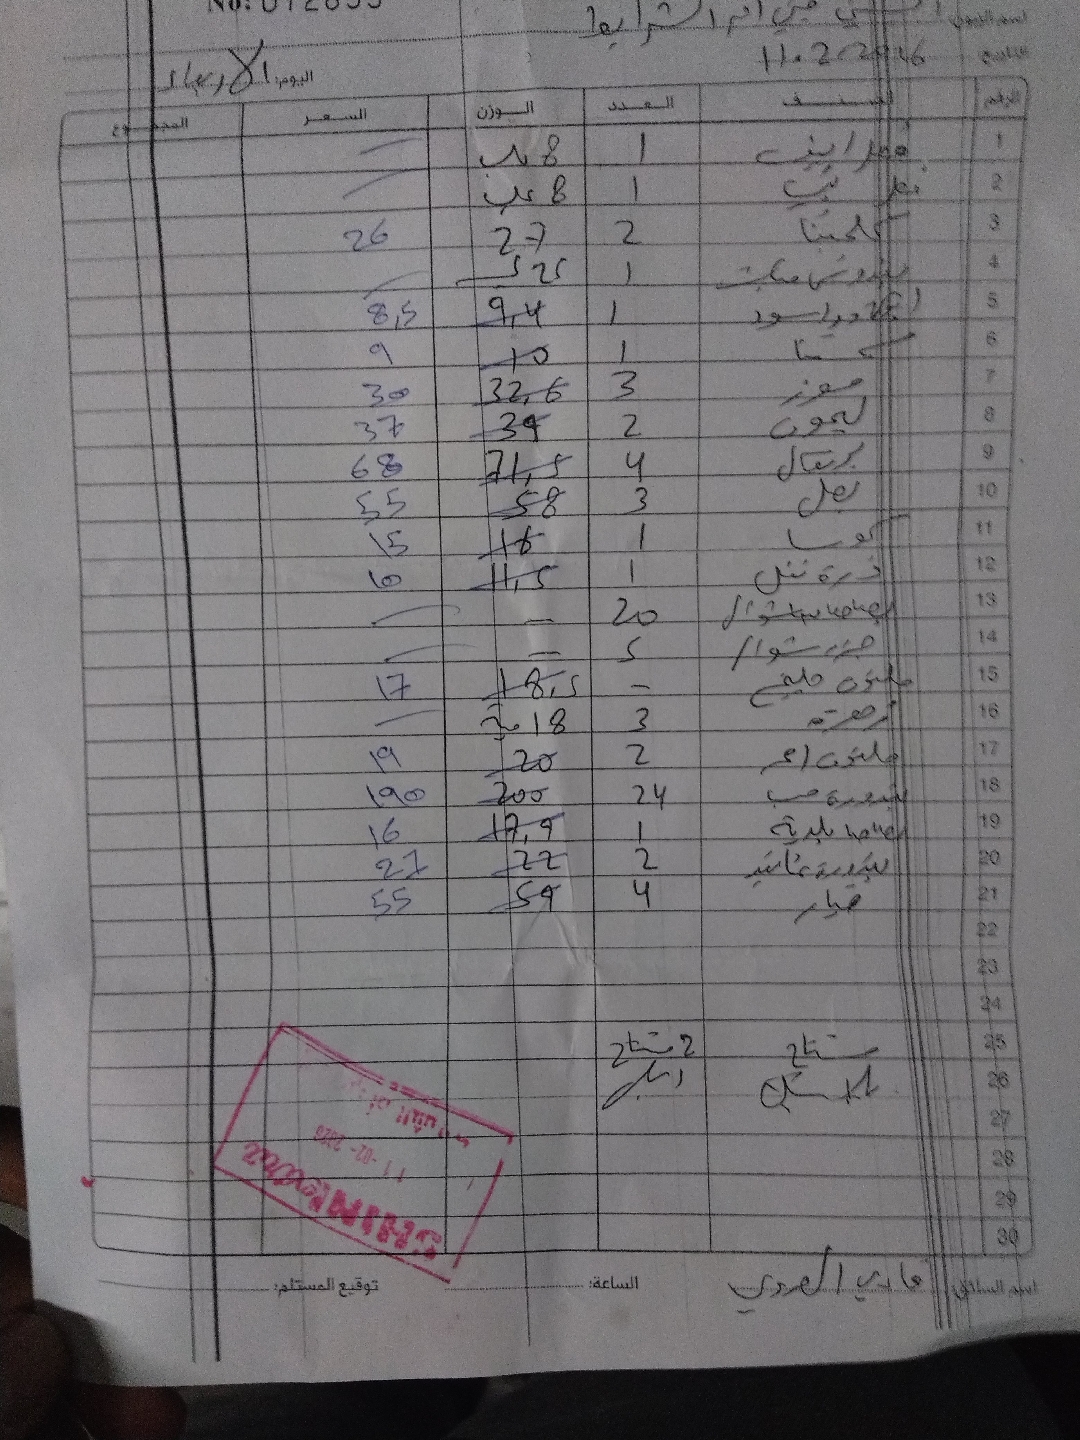 No: 012695
اسم الزبون: الشني ميني ام الشرايط
التاريخ: 11.2.2026
اليوم: الأربعاء
الرقم الصنف العدد الوزن السعر المجموع
1 فطر ابيض 1 8 علب
2 1 8 علب
3 كلمنتينا 2 27 26
4 1 25
5 1 9,4 8,5
6 1 10 9
7 موز 3 32,6 30
8 ليمون 2 39 37
9 برتقال 4 71,5 68
10 بصل 3 58 55
11 كوسا 1 16 15
12 ذرة 1 11,5 10
13 بطاطا شوال 20 —
14 جزر شوال 5 —
15 مليون — 18,5 17
16 زهرة 3 18 حبة
17 مليون احمر 2 20 19
18 بندورة حب 24 200 190
19 بطاطا بلدية 1 17,9 16
20 بندورة عناقيد 2 22 21
21 خيار 4 59 55
22
23
24
25 مشتاح 2 مشتاح
26 بلاستيك
27
28
29
30
SHINAWI
11-02-2026
اسم السائق: فادي
الساعة:
توقيع المستلم: